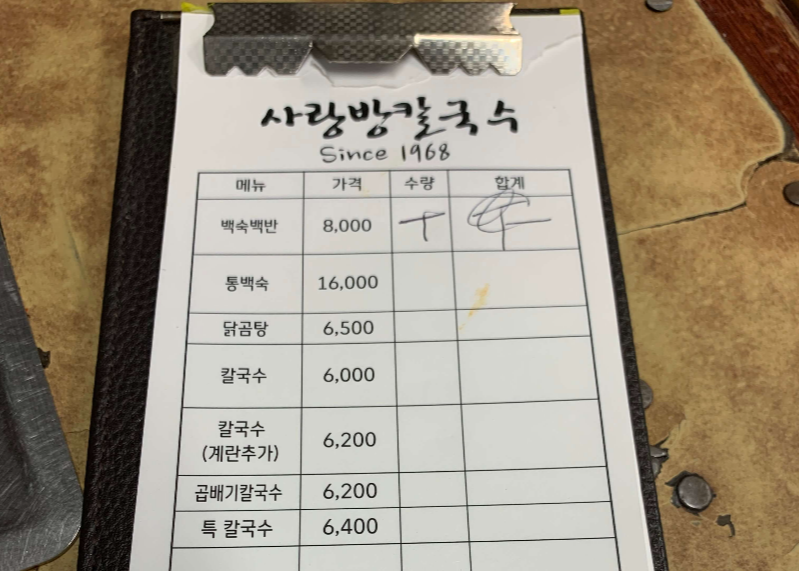 사랑방칼국수
Since 1968
메뉴 가격 수량 합계
백숙백반 8,000 ㅜ
통백숙 16,000
닭곰탕 6,500
칼국수 6,000
칼국수
(계란추가) 6,200
곱배기칼국수 6,200
특 칼국수 6,400